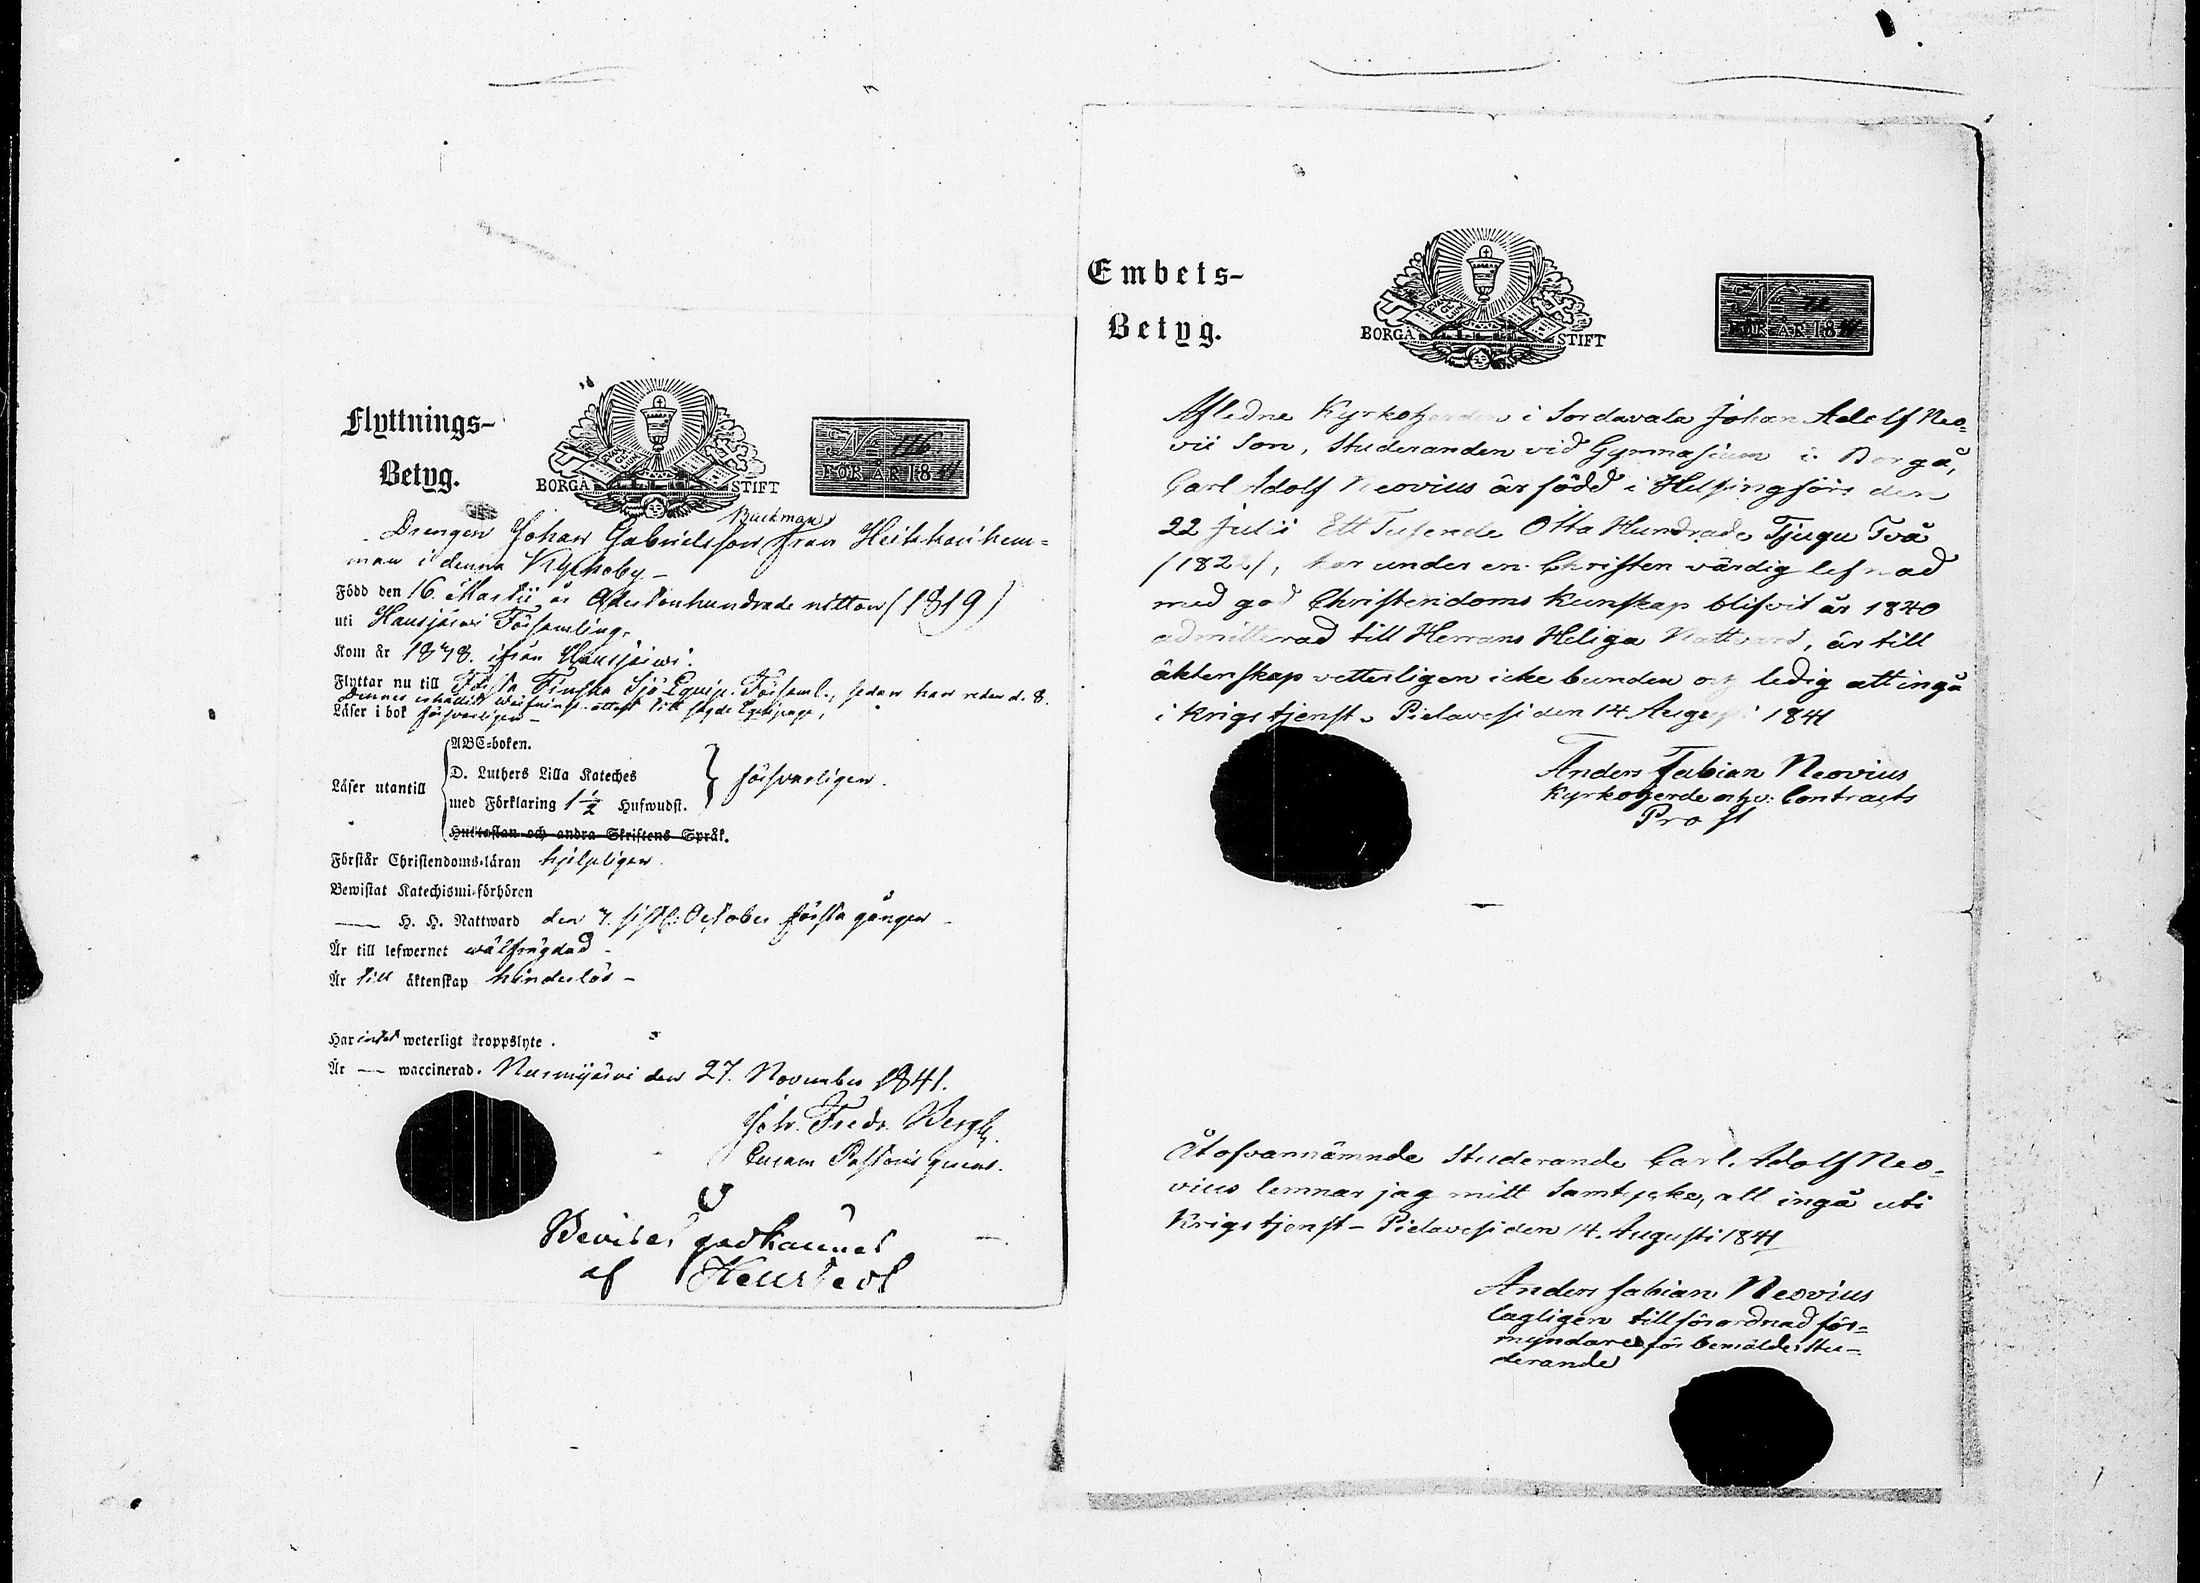 Flyttnings-
Betyg.
BORGÅ STIFT
No 116
FÖR ÅR 1841
Backman
Drengen Johan Gabrielsson från Heikkari hem=
man i denna Kyrkoby –
Född den 16 Martii år Adertonhundrade nitton (1819)
uti Hausjärvi Församling.
Kom år 1838. ifrån Hausjärvi.
Flyttar nu till Första Finska Sjö Equip. Församl., sedan han redan d. 8.
dennes erhållit attest till sagde Equipage,
Läser i bok försvarligen –
Läser utantill
ABC-boken.
D. Luthers Lilla Kateches
med Förklaring 1 1/2 Hufwudst.
försvarligen.
Hustaflan och andra Skriftens Språk.
Förstår Christendoms-läran hjelpligen.
Bewistat Katechismi-förhören
— H. H. Nattward den 7. sistl. October första gången –
Är till lefwernet wälfrägdad –
Är till äktenskap hinderlös –
Har intet weterligt kroppslyte.
Är — waccinerad. Nurmijärvi den 27. November 1841.
Joh. Fredr. Bergh.
Curam Pastoris gerens.
Beviset godkännes
af
Embets-
Betyg.
BORGÅ STIFT
No
FÖR ÅR 1841
Afledne Kyrkoherden i Sordavala Johan Adolf Neo=
vii Son, Studeranden vid Gymnasium i Borgå,
Carl Adolf Neovius är född i Helsingfors den
22 Julii Ett Tusende Otta Hundrade Tjugu Två
/1822/, har under en Christen värdig lefnad
med god Christendoms kunskap blifvit år 1840
admitterad till Herrans Heliga Nattvard, är till
äktenskap vetterligen icke bunden och ledig att ingå
i Krigstjenst. Pielavesi den 14 Augusti 1841
Anders Fabian Neovius
Kyrkoherde och v: Contracts
Prost
Åt ofvannämnde Studerande Carl Adolf Neo=
vius lemnar jag mitt Samtycke, att ingå uti
Krigstjenst – Pielavesi den 14. Augusti 1841
Anders Fabian Neovius
lagligen tillförordnad för=
myndare för bemälde Stu=
derande